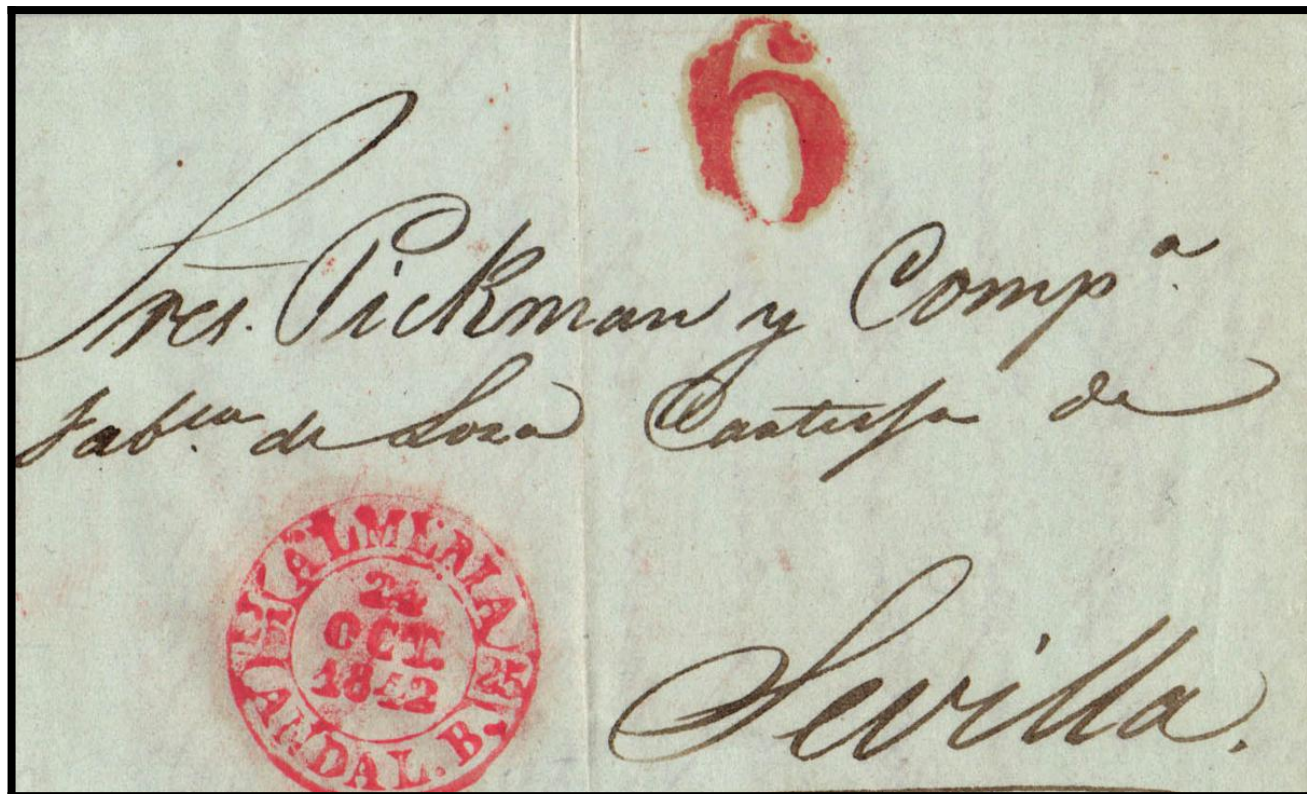 6
Sres. Pickman y Comp.ª
Fab.ca de Loza Cartuja de
ALMERIA
OCT.
ANDAL. B.
Sevilla.